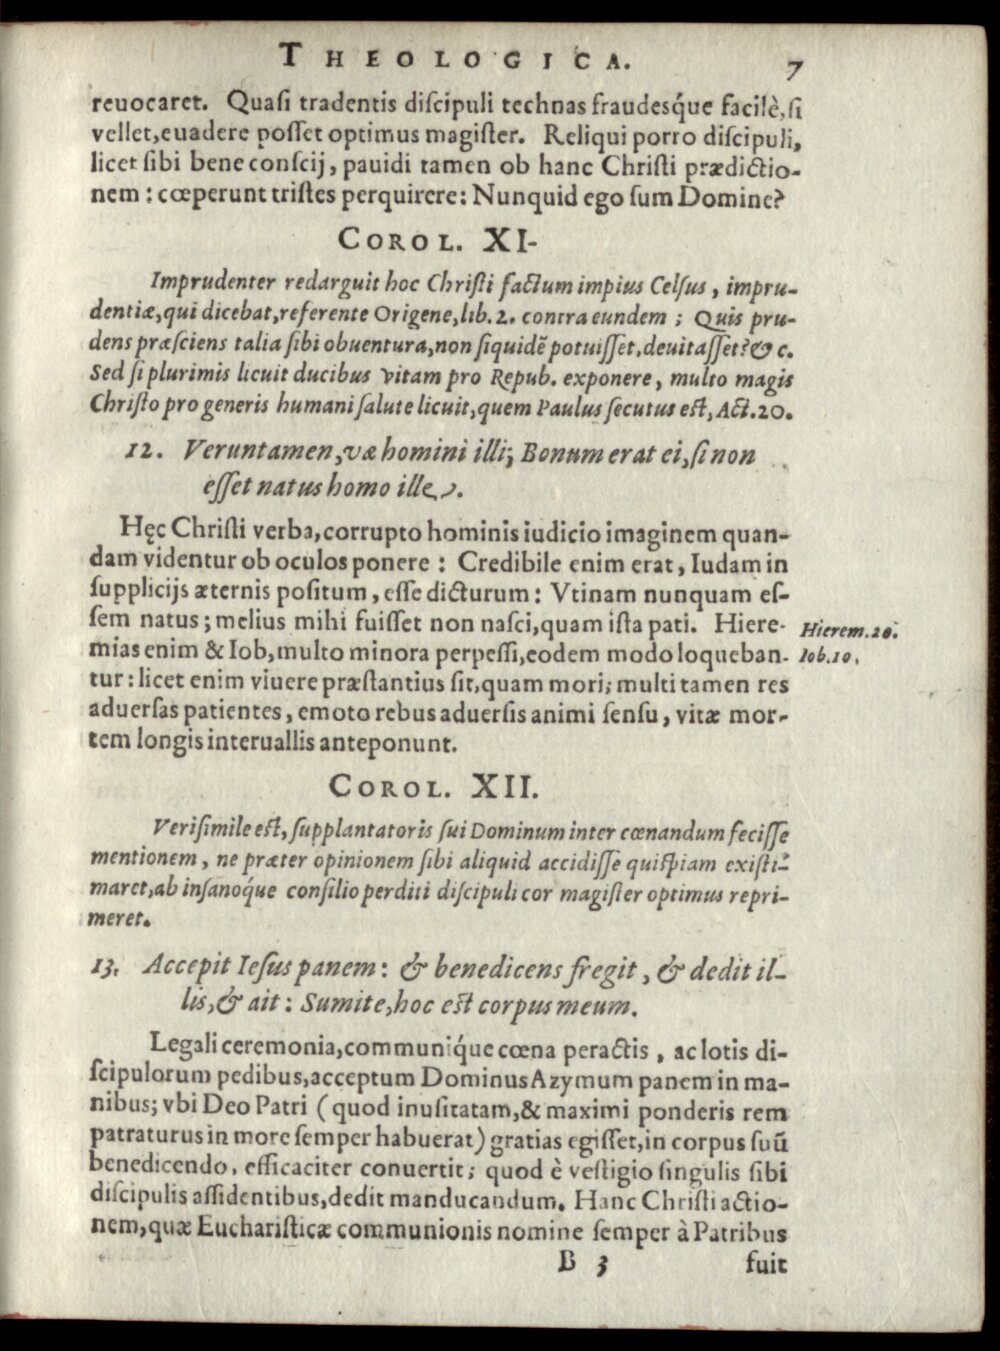 THEOLOGICA. 7
reuocaret. Quasi tradentis discipuli technas fraudesq́ue facilè, si
vellet, euadere posset optimus magister. Reliqui porro discipuli,
licet sibi bene conscij, pauidi tamen ob hanc Christi prædictio-
nem: cœperunt tristes perquirere: Nunquid ego sum Domine?
COROL. XI-
Imprudenter redarguit hoc Christi factum impius Celsus, impru-
dentiæ, qui dicebat, referente Origene, lib. 2. contra eundem; Quis pru-
dens præsciens talia sibi obuentura, non siquidẽ potuisset, deuitasset? & c.
Sed si plurimis licuit ducibus vitam pro Repub. exponere, multo magis
Christo pro generis humani salute licuit, quem Paulus secutus est, Act. 20.
12. Veruntamen, væ homini illi; Bonum erat ei, si non
esset natus homo ille.
Hęc Christi verba, corrupto hominis iudicio imaginem quan-
dam videntur ob oculos ponere: Credibile enim erat, Iudam in
supplicijs æternis positum, esse dicturum: Vtinam nunquam es-
sem natus; melius mihi fuisset non nasci, quam ista pati. Hiere- Hierem. 20.
mias enim & Iob, multo minora perpessi, eodem modo loqueban- Iob. 10,
tur: licet enim viuere præstantius sit, quam mori; multi tamen res
aduersas patientes, emoto rebus aduersis animi sensu, vitæ mor-
tem longis interuallis anteponunt.
COROL. XII.
Verisimile est, supplantatoris sui Dominum inter cœnandum fecisse
mentionem, ne præter opinionem sibi aliquid accidisse quispiam existi-
maret, ab insanoq́ue consilio perditi discipuli cor magister optimus repri-
meret.
13. Accepit Iesus panem: & benedicens fregit, & dedit il-
lis, & ait: Sumite, hoc est corpus meum.
Legali ceremonia, communiq́ue cœna peractis, ac lotis di-
scipulorum pedibus, acceptum Dominus Azymum panem in ma-
nibus; vbi Deo Patri (quod inusitatam, & maximi ponderis rem
patraturus in more semper habuerat) gratias egisset, in corpus suũ
benedicendo, efficaciter conuertit; quod è vestigio singulis sibi
discipulis assidentibus, dedit manducandum. Hanc Christi actio-
nem, quæ Eucharisticæ communionis nomine semper à Patribus
B 3 fuit